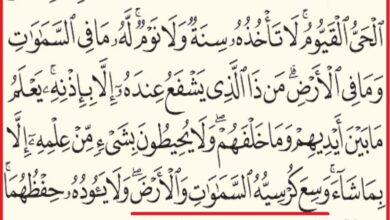 ٱلْحَىُّ ٱلْقَيُّومُ ۚ لَا تَأْخُذُهُۥ سِنَةٌ وَلَا نَوْمٌ ۚ لَّهُۥ مَا فِى ٱلسَّمَـٰوَٰتِ
وَمَا فِى ٱلْأَرْضِ ۗ مَن ذَا ٱلَّذِى يَشْفَعُ عِندَهُۥٓ إِلَّا بِإِذْنِهِۦ ۚ يَعْلَمُ
مَا بَيْنَ أَيْدِيهِمْ وَمَا خَلْفَهُمْ ۖ وَلَا يُحِيطُونَ بِشَىْءٍ مِّنْ عِلْمِهِۦٓ إِلَّا
بِمَا شَآءَ ۚ وَسِعَ كُرْسِيُّهُ ٱلسَّمَـٰوَٰتِ وَٱلْأَرْضَ ۖ وَلَا يَـُٔودُهُۥ حِفْظُهُمَا ۚ